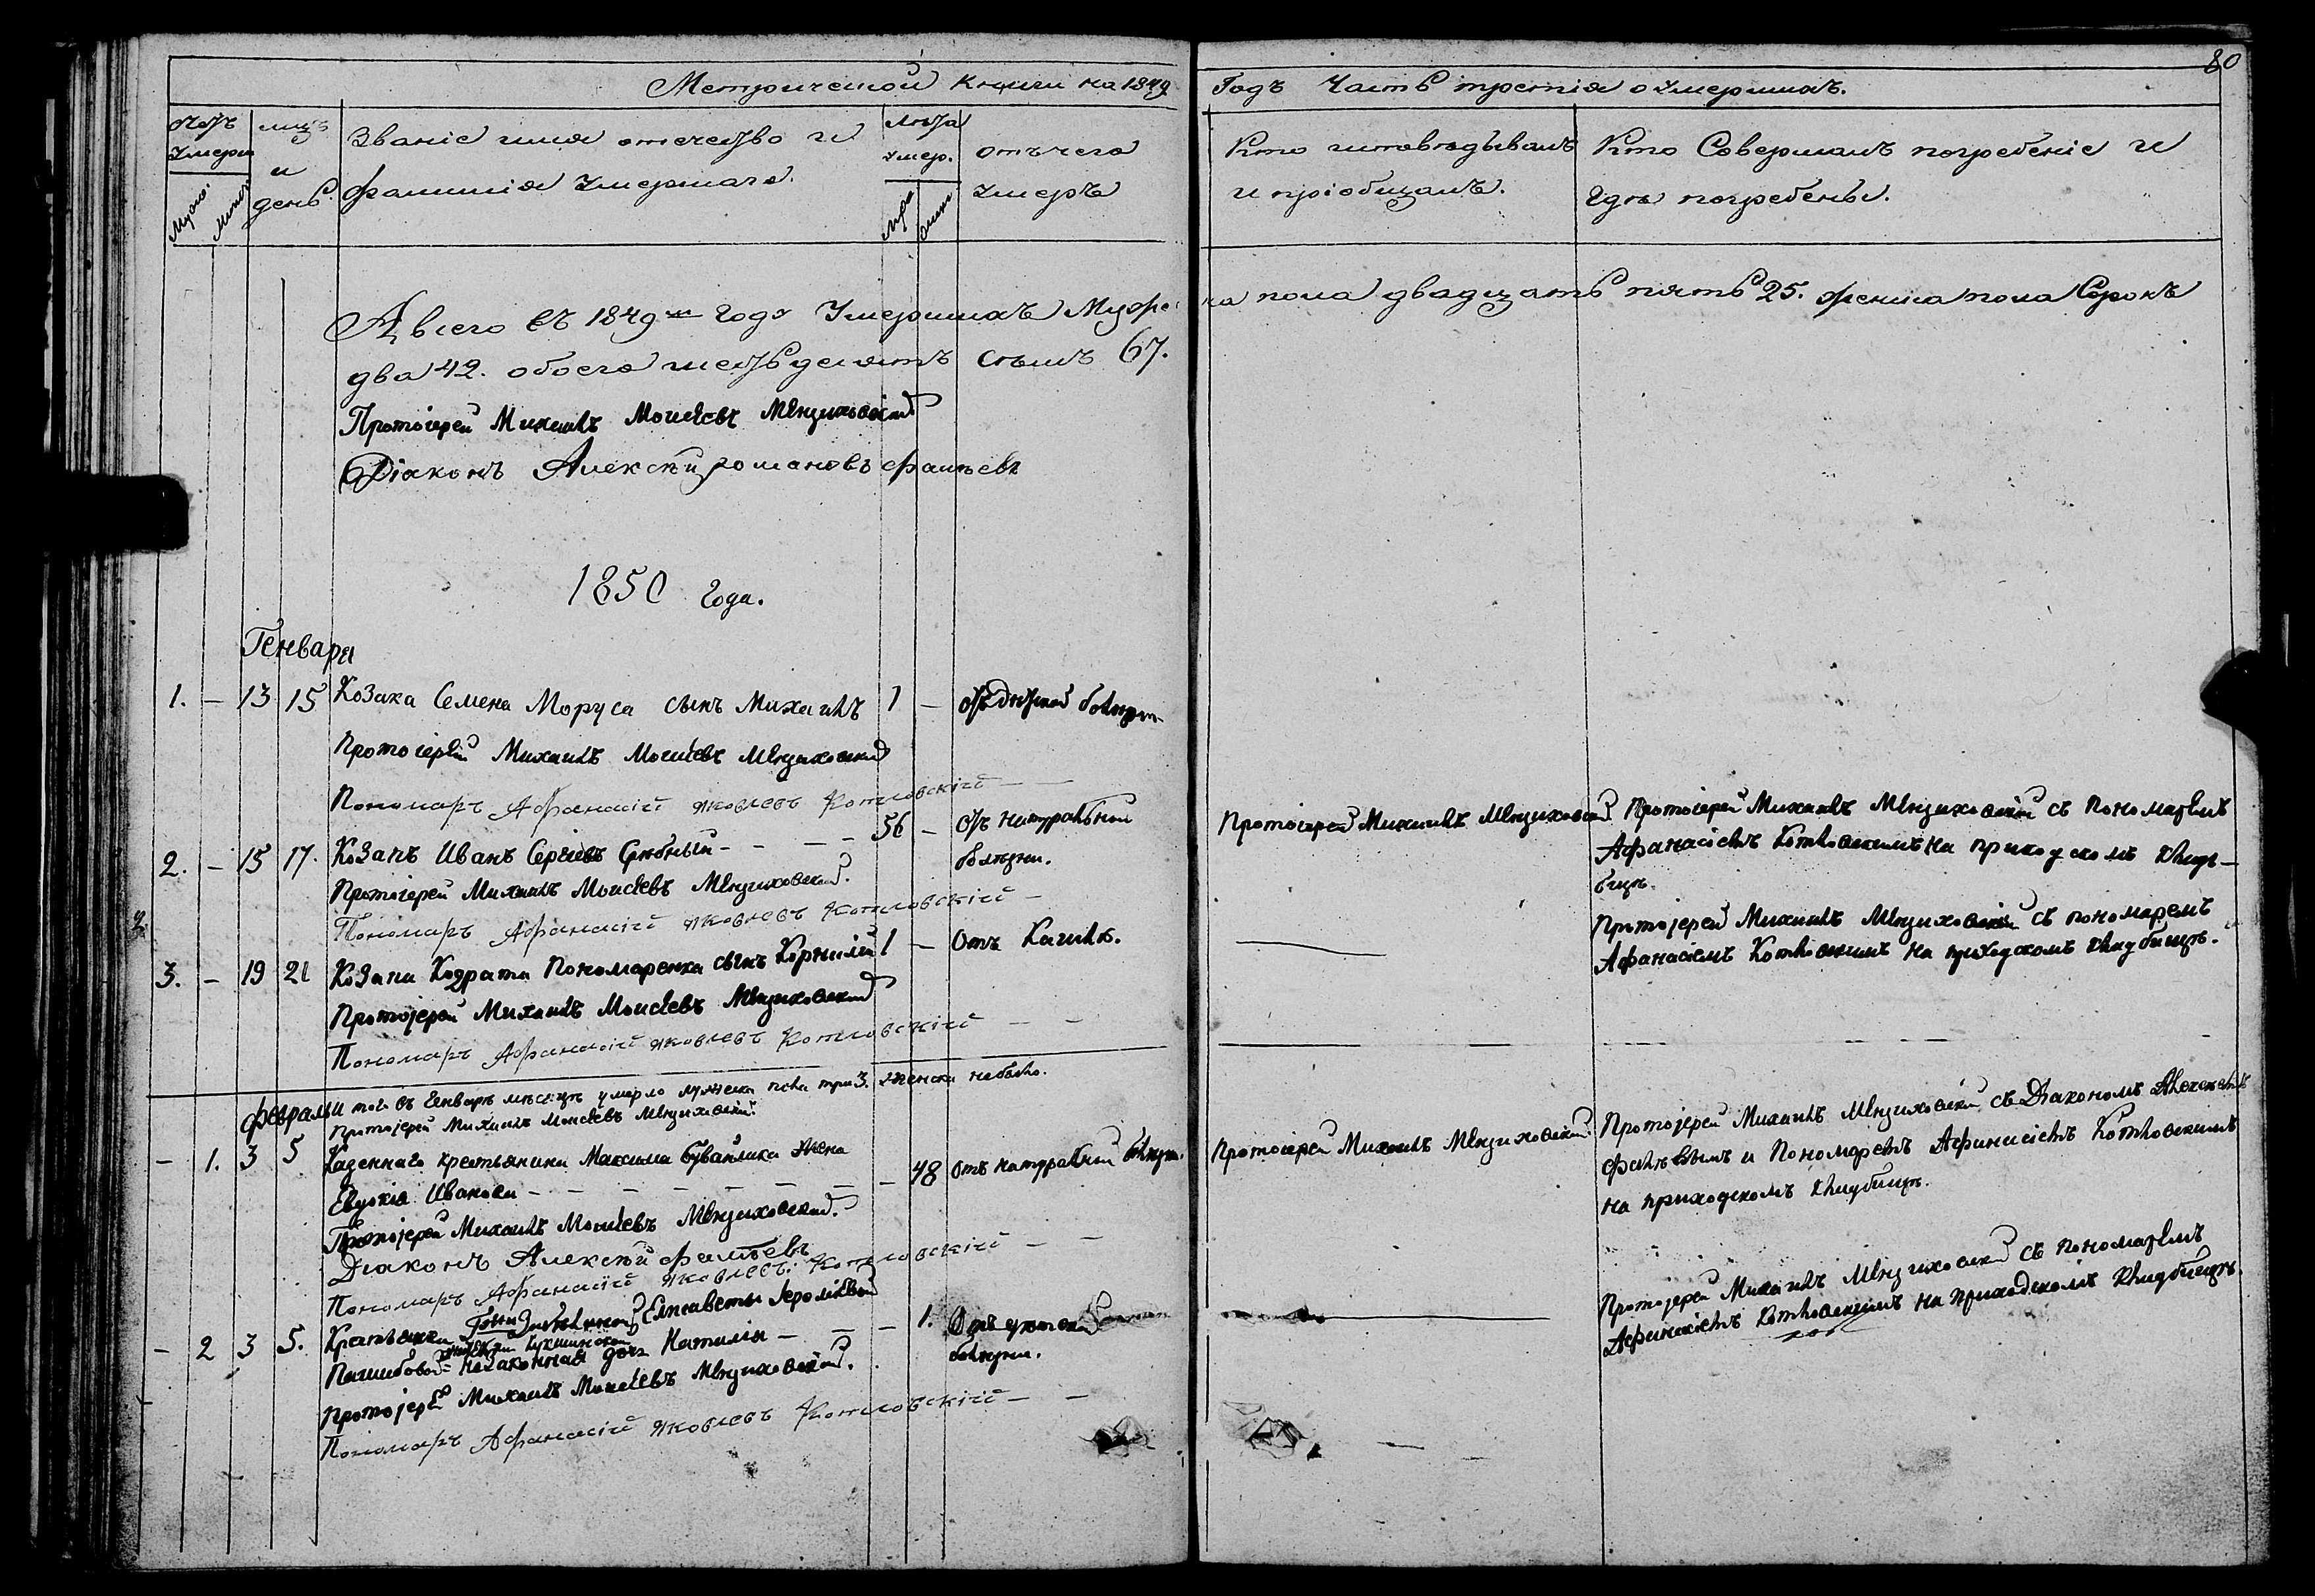 80
Метрической книги на 1849
Годъ Часть третія о умершихъ.
Счетъ умерш.
Муж.
Женс.
мцъ и день.
Званіе имя отечество и
фамилія умершаго.
Лѣта умер.
Муж
Жен
отъ чего
умеръ
Кто исповѣдывалъ
и пріобщалъ.
Кто Совершалъ погребеніе и
гдѣ погребены.
А всего въ 1849м году умершихъ Муже
ка пола двадцать пять 25. женска пола Сорокъ
два 42. обоего шестьдесятъ семь 67.
Протоіерей Михаилъ Моисеевъ
Діаконъ Алексѣй романовъ фалѣевъ
1850 года.
Генваря
1. — 13 15 Козака Семена Моруса сынъ Михаилъ 1 — отъ дѣтской болѣзни
Протоіерей Михаилъ Моисеевъ
Пономаръ Афанасій Яковлевъ Котловскій
2. — 15 17. Козакъ Иванъ Сергіевъ — — — 56 — отъ натуральной
болѣзни.
Протоіерей Михаилъ
Протоіерей Михаилъ съ Пономаремъ
Афанасіемъ Котловскимъ на приходскомъ клад-
бищѣ.
Протоіерей Михаилъ Моисеевъ
Пономаръ Афанасій Яковлевъ Котловскій —
3. — 19 21 Козака Кодрата Пономаренка сынъ Корнилій 1 — Отъ Кашля.
Протоіерей Михаилъ съ пономаремъ
Афанасіемъ Котловскимъ на приходскомъ кладбищѣ.
Протоіерей Михаилъ Моисеевъ
Пономаръ Афанасій Яковлевъ Котловскій — —
того въ Генварѣ мѣсяцѣ умерло мужеска пола три 3. женска небыло.
Февраля
Протоіерей Михаилъ Моисеевъ
— 1. 3 5 Казеннаго крестьянина Максима жена
Евдокія Иванова — — — — — — — 48 отъ натуральной болѣзни.
Протоіерей Михаилъ
Протоіерей Михаилъ съ Діакономъ Алексѣемъ
фалѣевымъ и Пономаремъ Афанасіемъ Котловскимъ
на приходскомъ кладбищѣ.
Протоіерей Михаилъ Моисеевъ
Діаконъ Алексѣй фалѣевъ
Пономаръ Афанасій Яковлевъ Котловскій — —
— 2 3 5. Крестьянки Елисаветы
незаконная дочь Наталія — — — 1.
болѣзни.
Протоіерей Михаилъ съ пономаремъ
Афанасіемъ Котловскимъ на приходскомъ кладбищѣ.
Протоіерей Михаилъ Моисеевъ
Пономаръ Афанасій Яковлевъ Котловскій — —